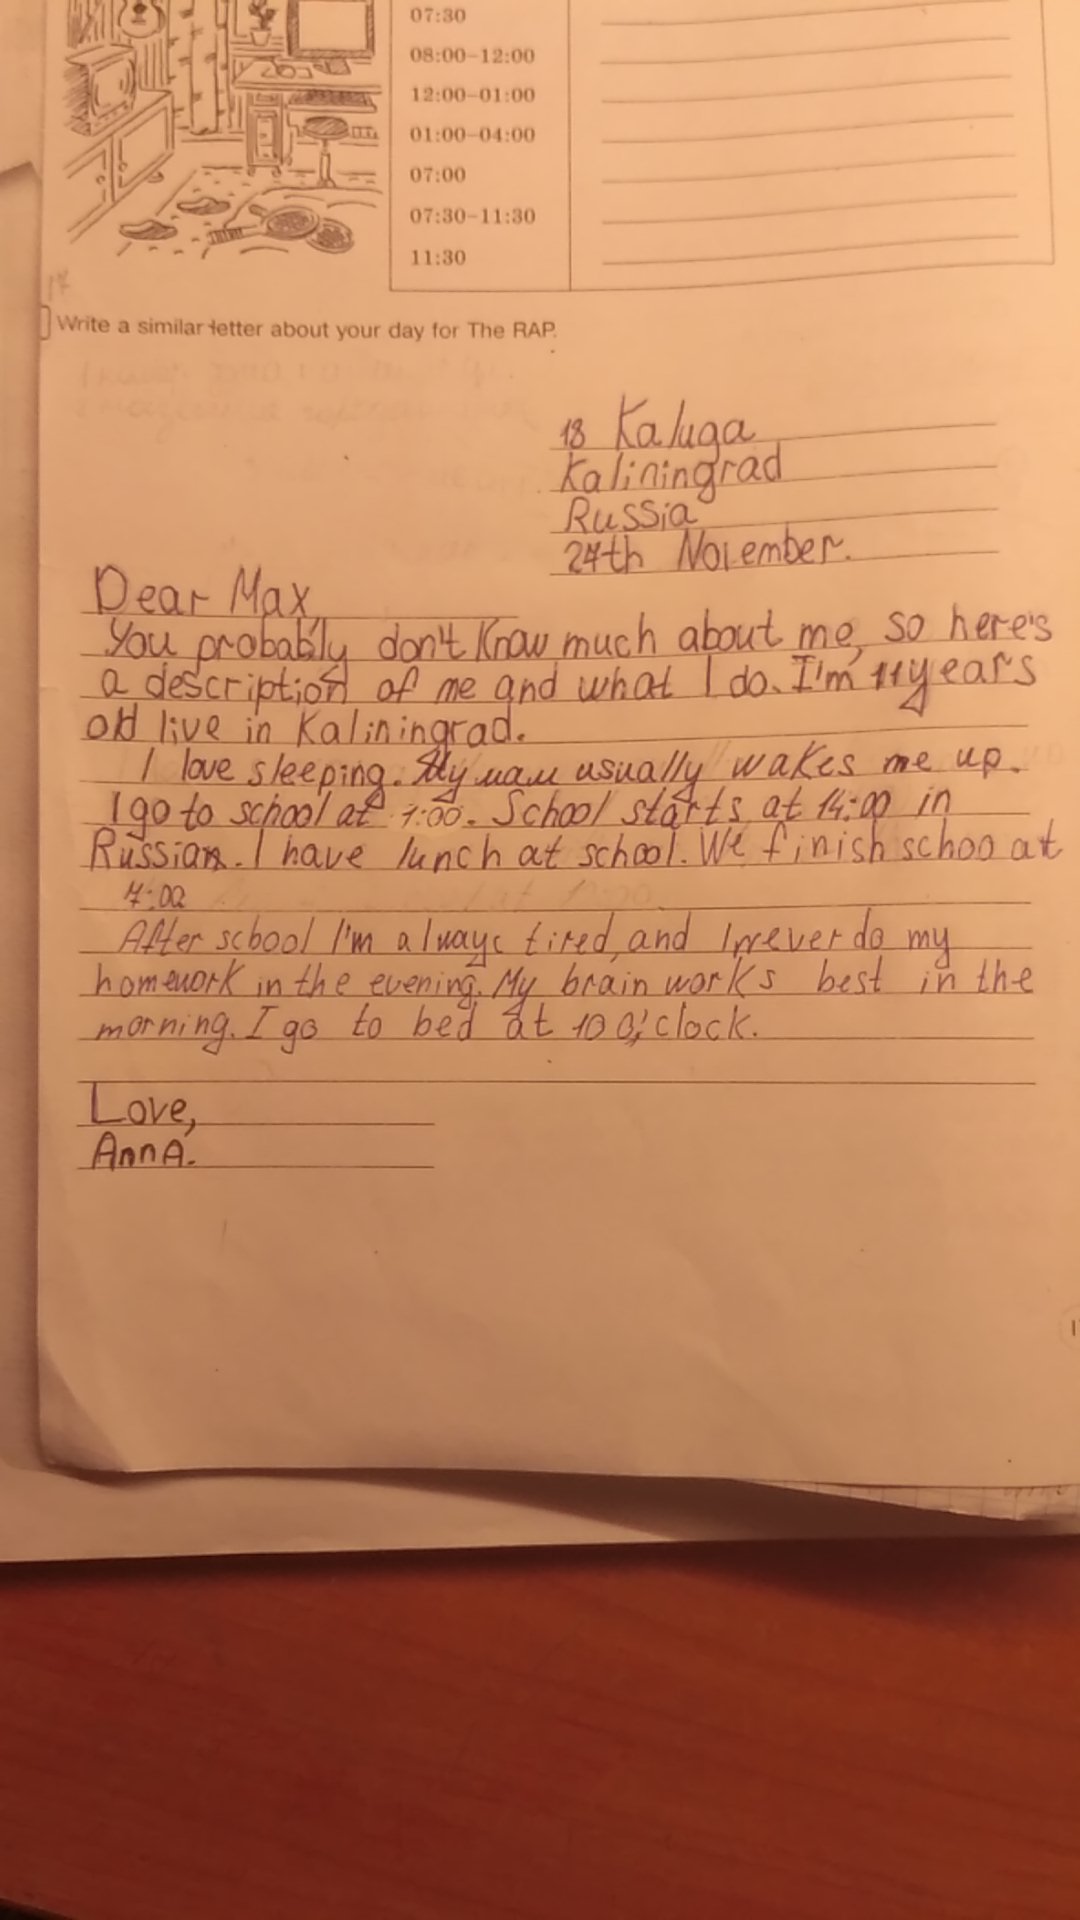 07:30
08:00–12:00
12:00–01:00
01:00–04:00
07:00
07:30–11:30
11:30
Write a similar letter about your day for The RAP.
18 Kaluga
Kaliningrad
Russia
24th November.
Dear Max
You probably don't know much about me, so here's
a description of me and what I do. I'm 11 years
old live in Kaliningrad.
I love sleeping. My мам usually wakes me up.
I go to school at 1:00. School starts at 14:00 in
Russian. I have lunch at school. We finish schoo at
7:00
After school I'm always tired, and I never do my
homework in the evening. My brain works best in the
morning. I go to bed at 10 o'clock.
Love,
AnnA.